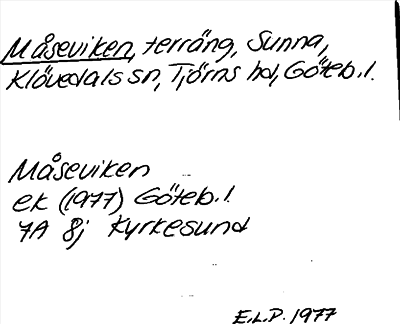 Måseviken, terräng, Sunna,
Klövedals sn, Tjörns hd, Göteb.l.
Måseviken
ek (1977) Göteb.l.
7A 8j Kyrkesund
E.L.P. 1977